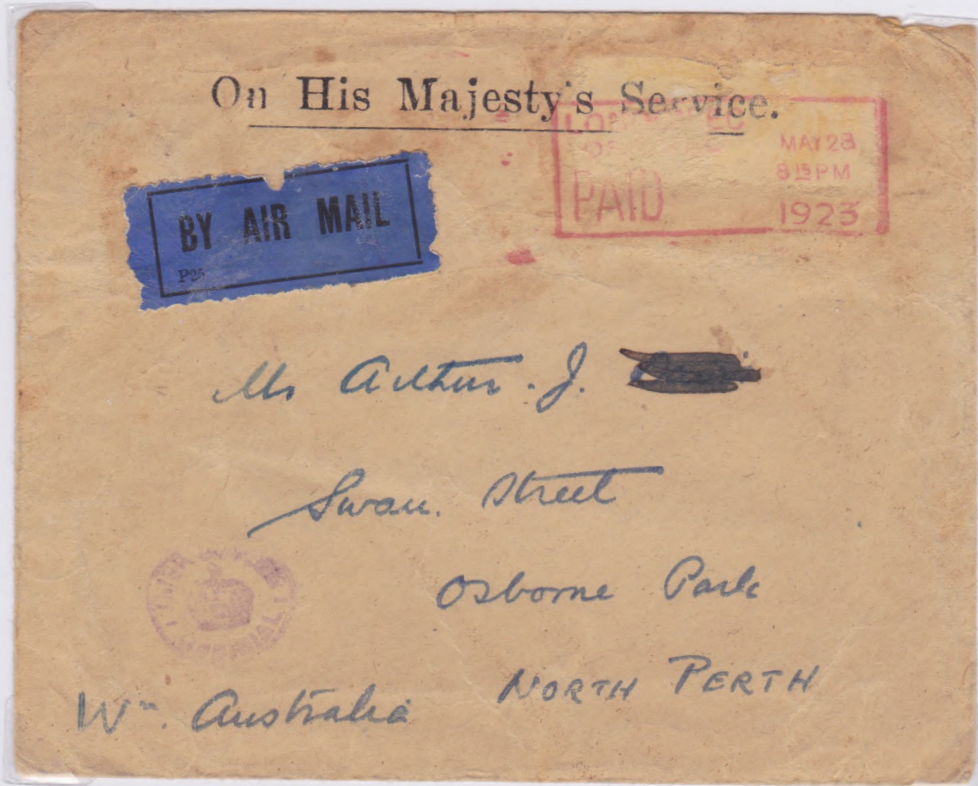 On His Majesty's Service.
LONDON EC
MAY 28
8 15 PM
PAID
1923
BY AIR MAIL
Mr Arthur. J.
Swan. Street
Osborne Park
NORTH PERTH
Wn. Australia